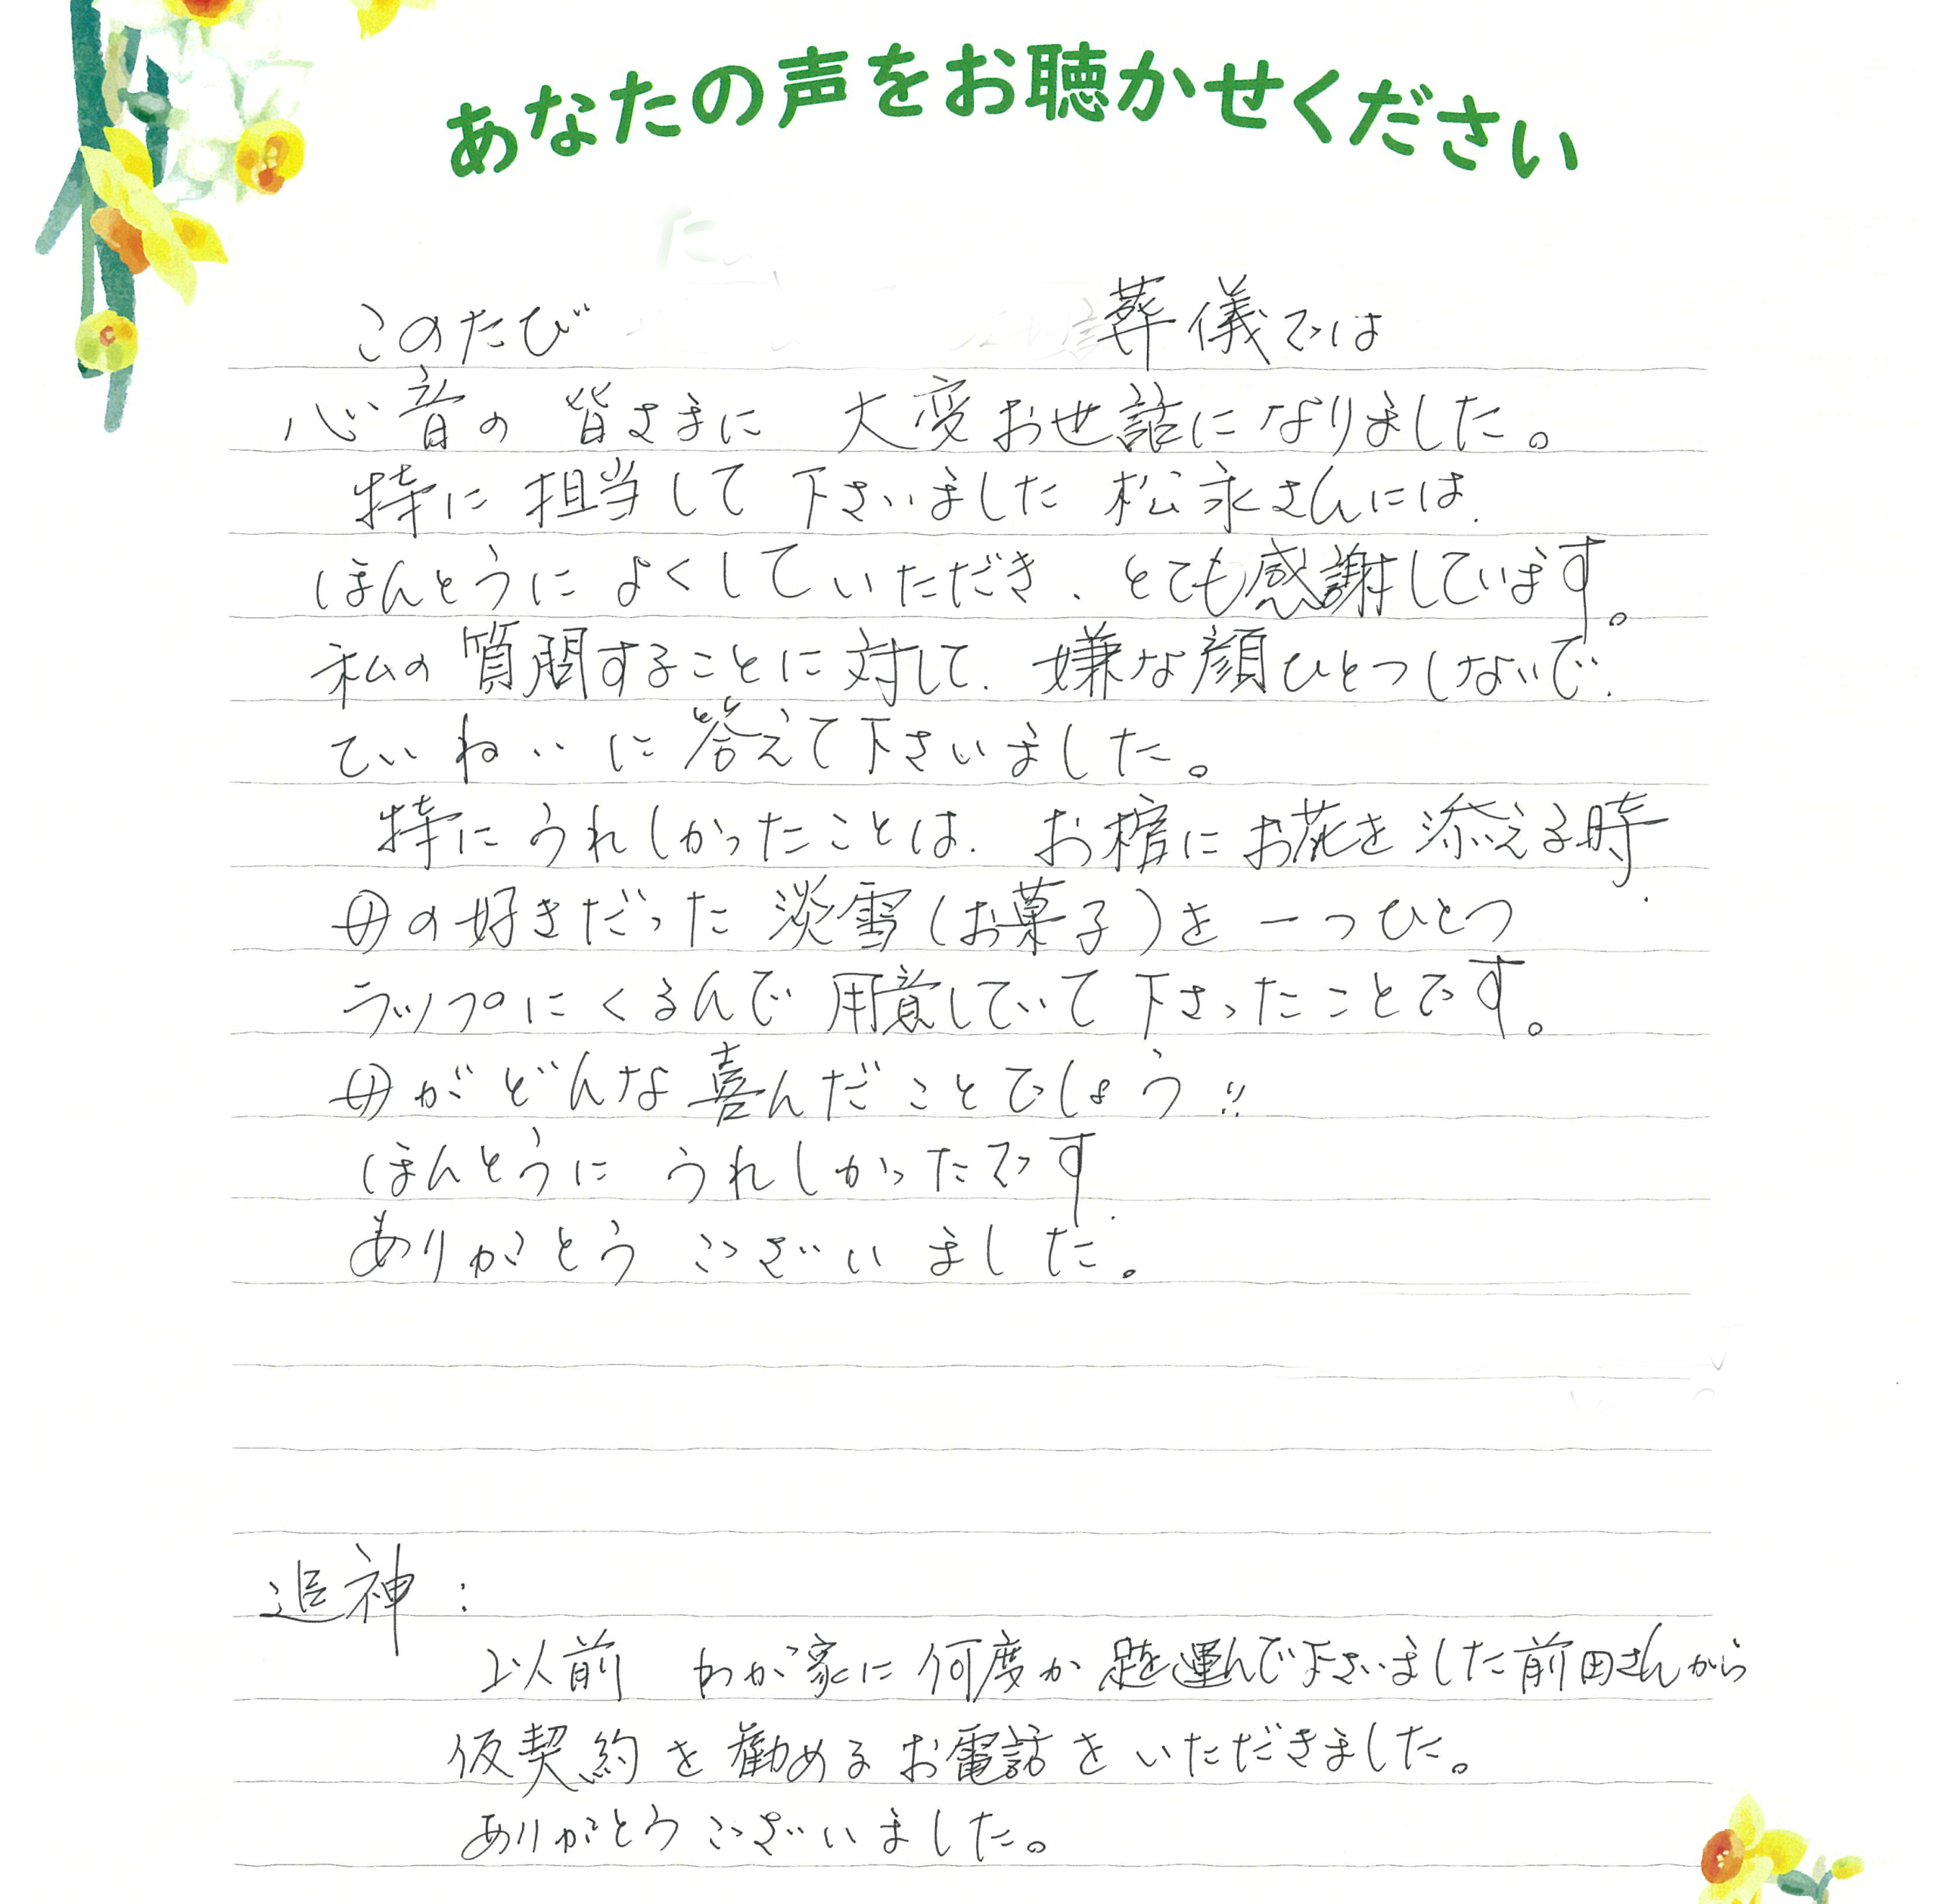 あなたの声をお聴かせください
このたび 葬儀では
心音の 皆さまに 大変お世話になりました。
特に 担当して 下さいました 松永さんには、
ほんとうに よくして いただき、とても感謝しています。
私の 質問することに 対して、嫌な顔ひとつしないで、
ていねいに 答えて下さいました。
特に うれしかったことは、お棺に お花を 添える時、
母の好きだった 淡雪(お菓子)を 一つひとつ
ラップに くるんで 用意していて 下さったことです。
母が どんな 喜んだ ことでしょう!!
ほんとうに うれしかったです。
ありがとう ございました。
追神:
以前 わが家に 何度か 足を運んで下さいました前田さんから
仮契約を 勧める お電話を いただきました。
ありがとう ございました。